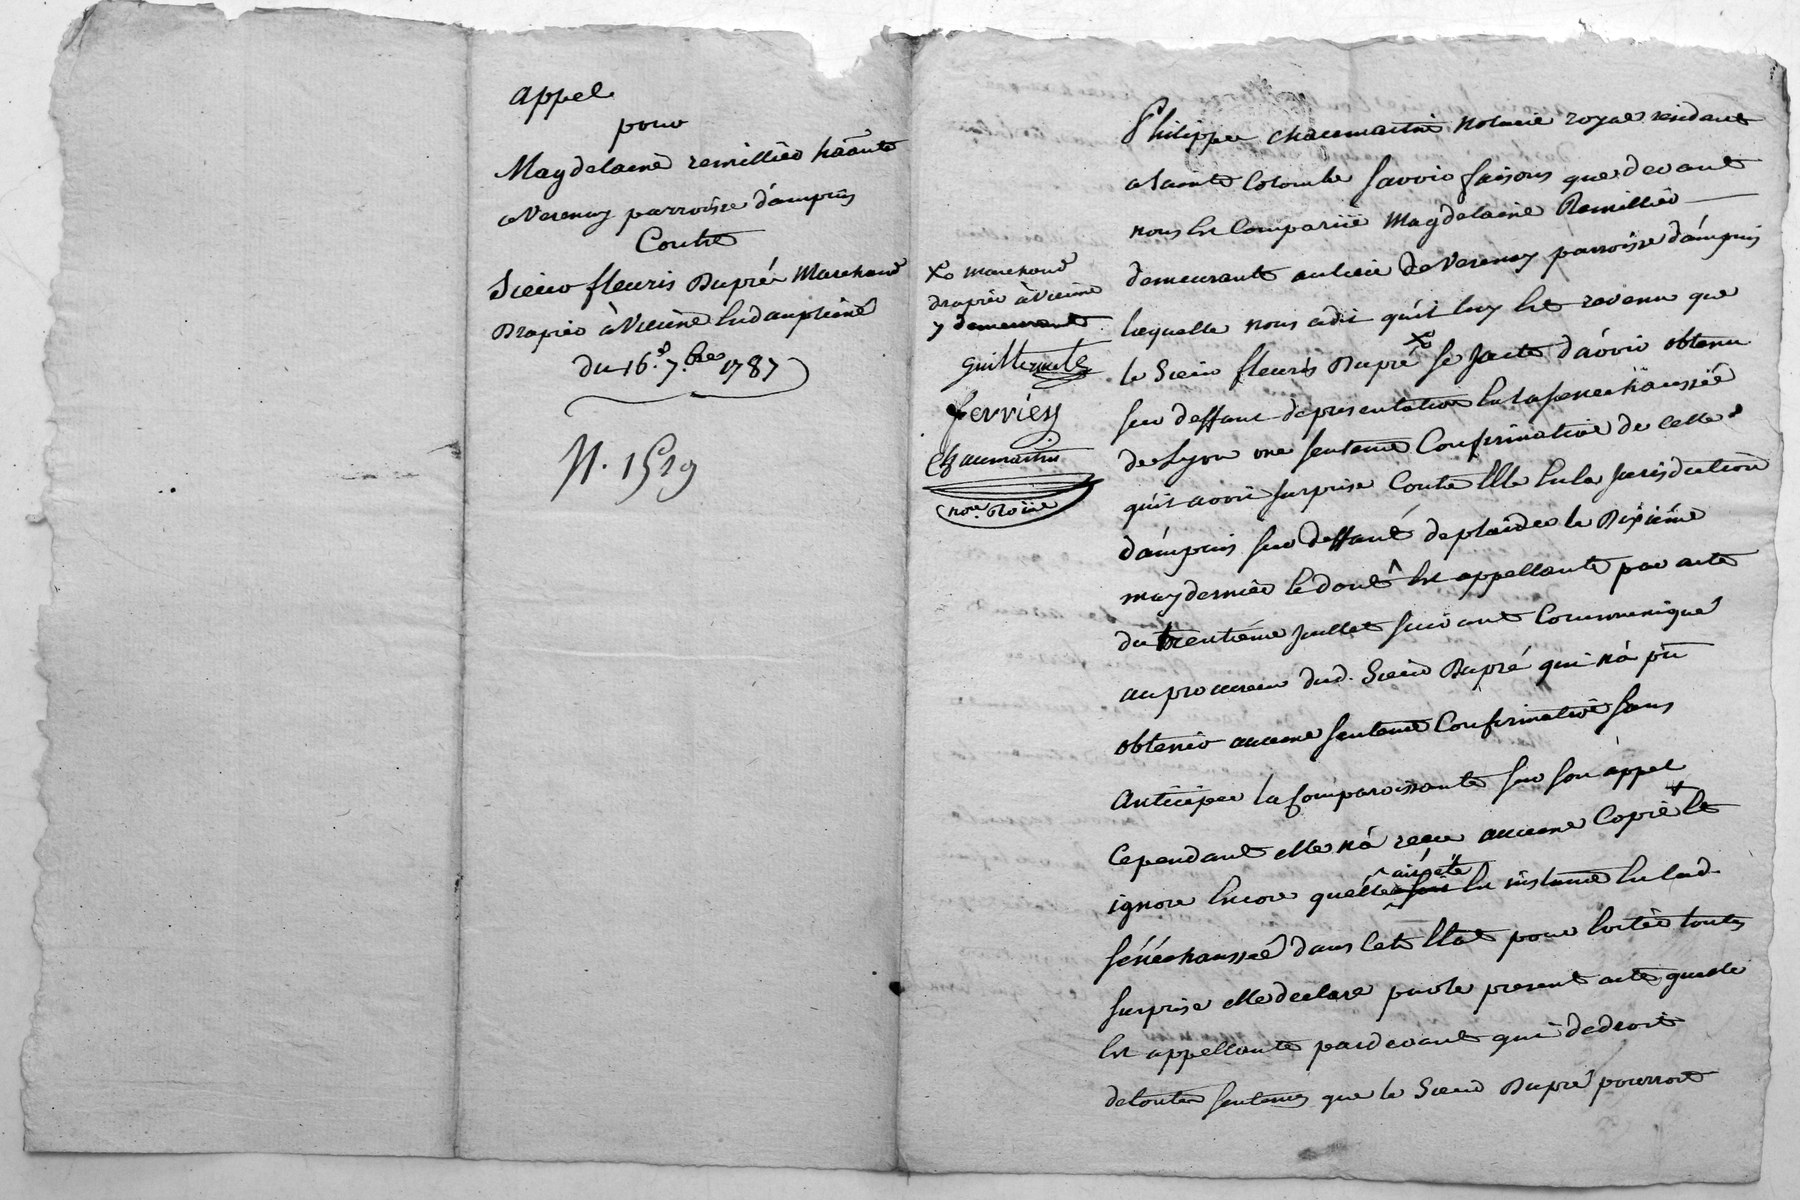 appel
pour
Magdelaine remillier háánte
a Verenay parroisse d'ampuis
Contre
Sieur fleuris Dupré Marchand
Drapier à Vienne En dauphiné
du 16.e 7.bre 1787
N. 1529
Philippe chaumartin notaire royal residant
a sainte Colombe savoir faisons que devant
nous Est Comparüe Magdelaine Remillier
demeurante au lieu de Verenay parroisse d'ampuis
laquelle nous a dit qu'il luy Est revenu que
le Sieur fleuris Dupré se jacte d'avoir obtenu
sur deffaut de presentation En la senechaussée
de Lyon une sentence Confirmative de celle
qu'il avoit surprise Contre Elle En la jurisdiction
d'ampuis sur deffaut de plaider le Dixième
may dernier Et dont Est appellante par acte
du trentième juillet suivant Communiqué
au procureur dud. Sieur Dupré qui n'à pû
obtenir aucune sentence Confirmative sans
Anticiper la Comparoissante sur son appel
Cependant elle n'à reçu aucune Copie Et
ignore Encore quelle En instance En lad.
sénéchaussée dans cet Etat pour Eviter toutes
surprise elle declare par le present acte quelle
Est appellante pardevant qui de droit
de toutes sentences que le Sieur Dupré pourroit
xo marchand
drapier à Vienne
y demeurant
Guillermet
ferriery
Chaumartin
no.re royal